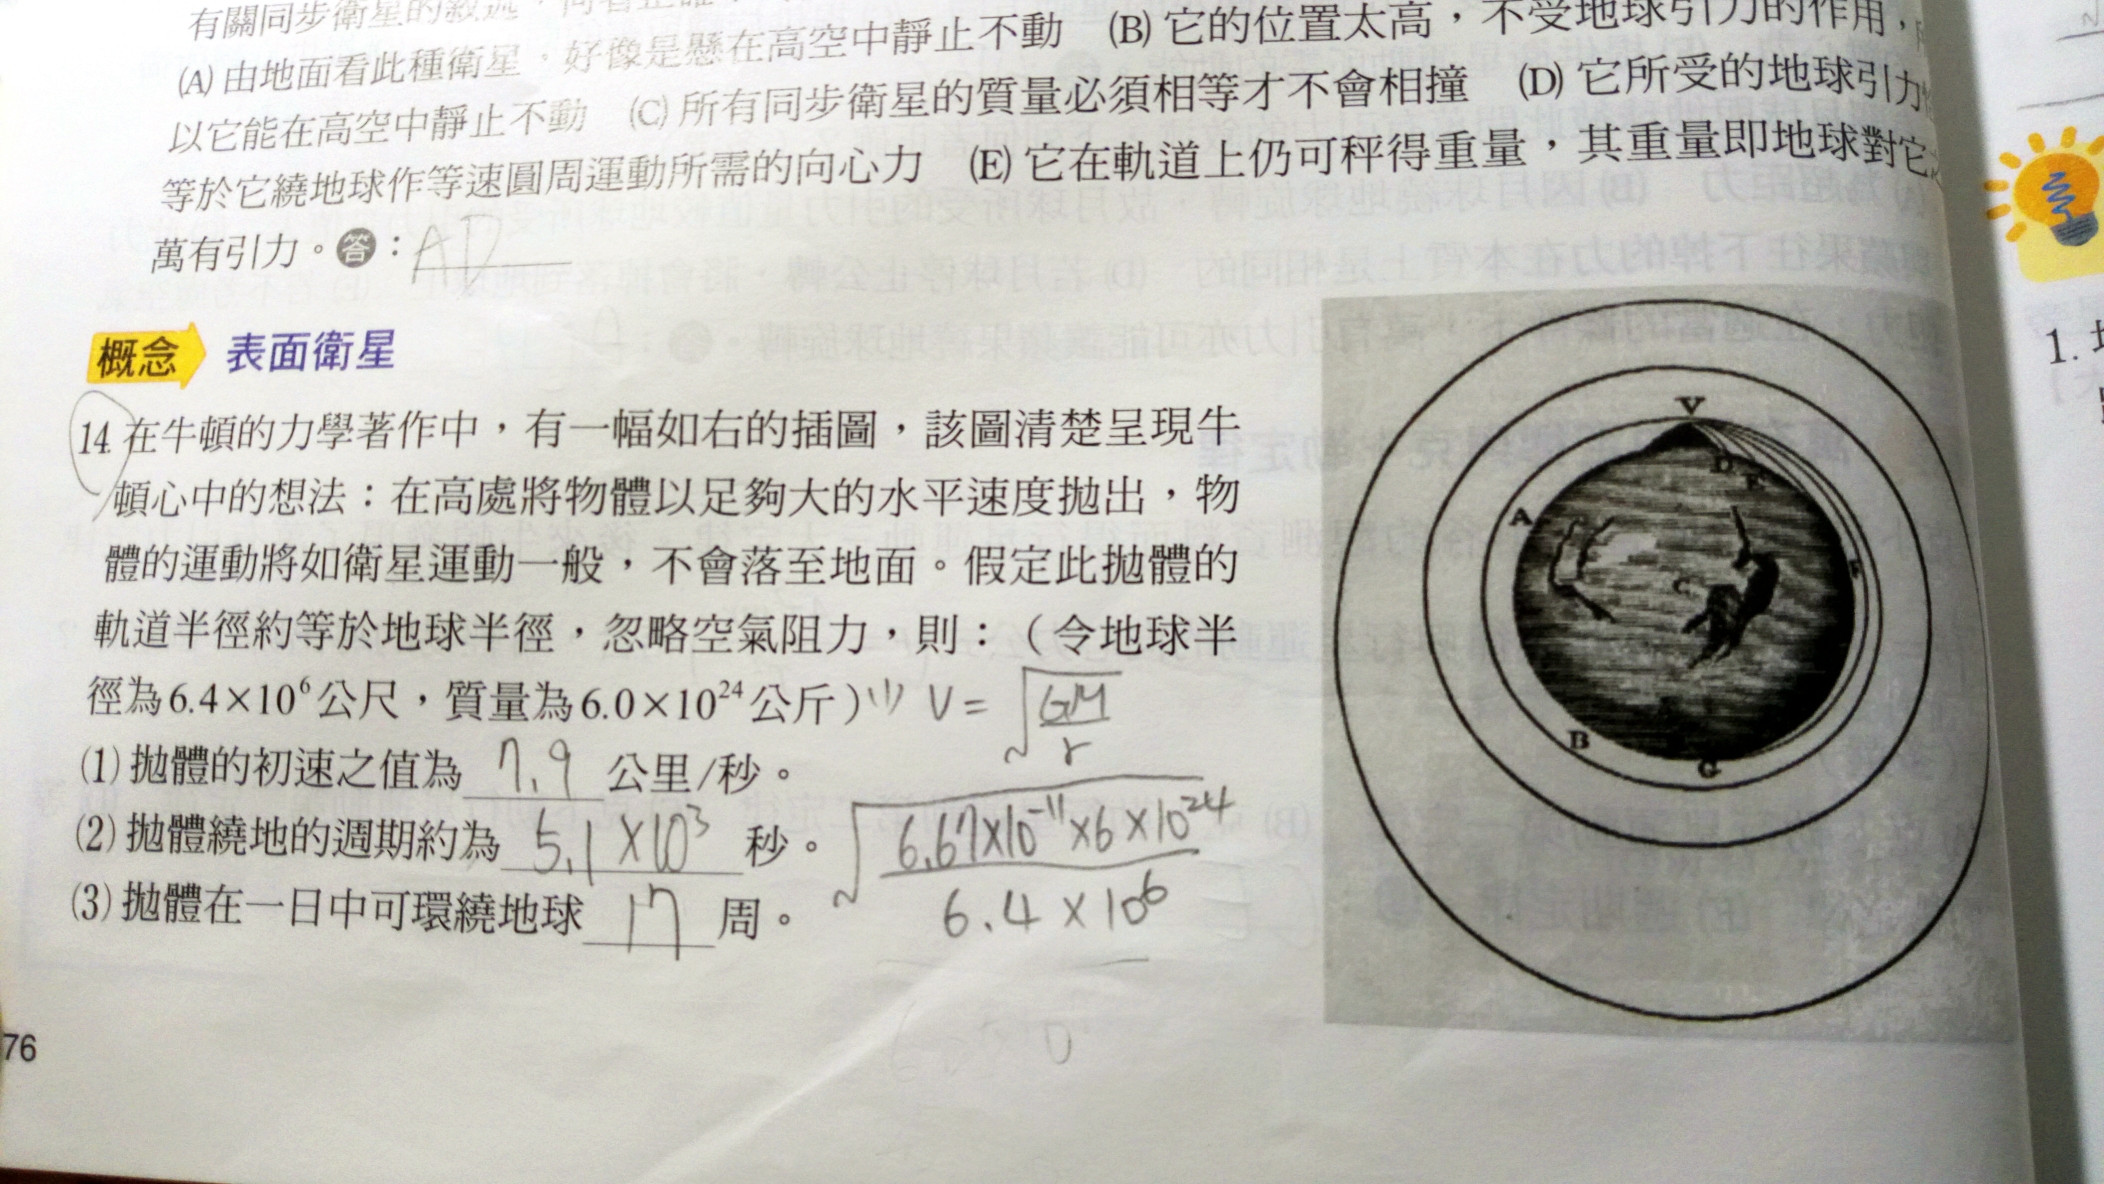 有關同步衛星的敘述，何者正確？
(A) 由地面看此種衛星，好像是懸在高空中靜止不動 (B) 它的位置太高，不受地球引力的作用，
以它能在高空中靜止不動 (C) 所有同步衛星的質量必須相等才不會相撞 (D) 它所受的地球引力
等於它繞地球作等速圓周運動所需的向心力 (E) 它在軌道上仍可秤得重量，其重量即地球對它
萬有引力。答：AD
概念 表面衛星
14. 在牛頓的力學著作中，有一幅如右的插圖，該圖清楚呈現牛
頓心中的想法：在高處將物體以足夠大的水平速度拋出，物
體的運動將如衛星運動一般，不會落至地面。假定此拋體的
軌道半徑約等於地球半徑，忽略空氣阻力，則：（令地球半
徑為6.4×10⁶公尺，質量為6.0×10²⁴公斤）(1) V = √(GM/r)
(1) 拋體的初速之值為 7.9 公里/秒。
(2) 拋體繞地的週期約為 5.1×10³ 秒。 √(6.67×10⁻¹¹×6×10²⁴ / 6.4×10⁶)
(3) 拋體在一日中可環繞地球 17 周。
V
D
F
A
C
B
G
76
1.